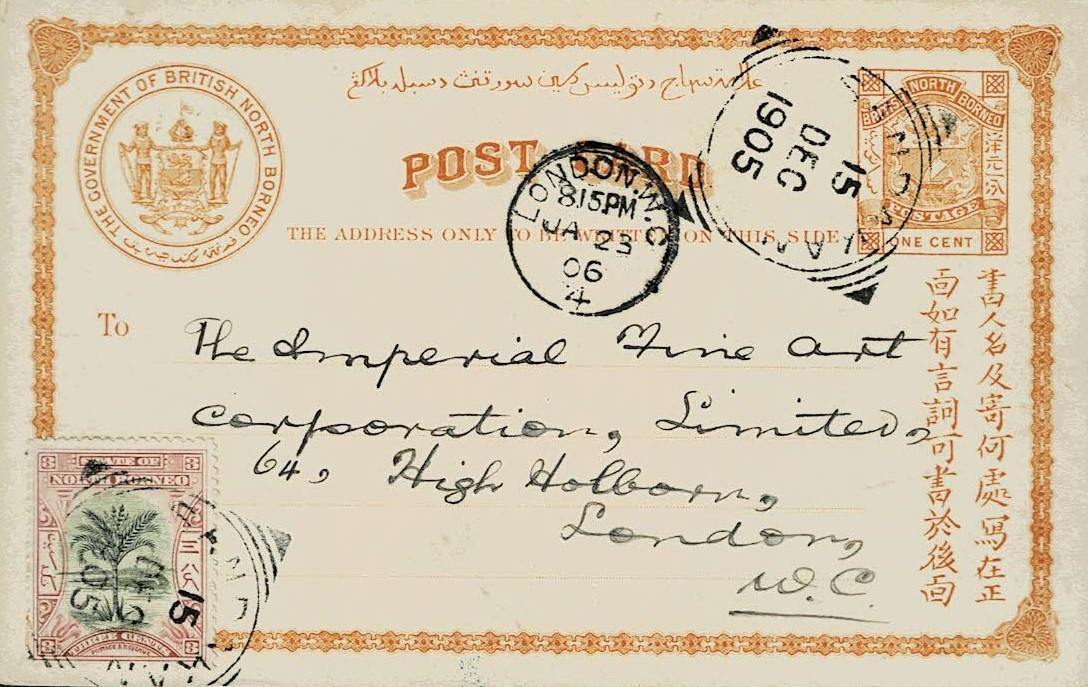 THE GOVERNMENT OF BRITISH NORTH BORNEO
POST CARD
THE ADDRESS ONLY TO BE WRITTEN ON THIS SIDE
BRITISH NORTH BORNEO
POSTAGE
ONE CENT
15
DEC
1905
LONDON.W.C
8.15PM
JA 23
06
4
書人名及寄何處寫在正
面如有言詞可書於後面
To
The Imperial Fine Art
Corporation, Limited,
64, High Holborn,
London,
W.C.
3 STATE OF 3
NORTH BORNEO
三
3 THREE CENTS 3
15